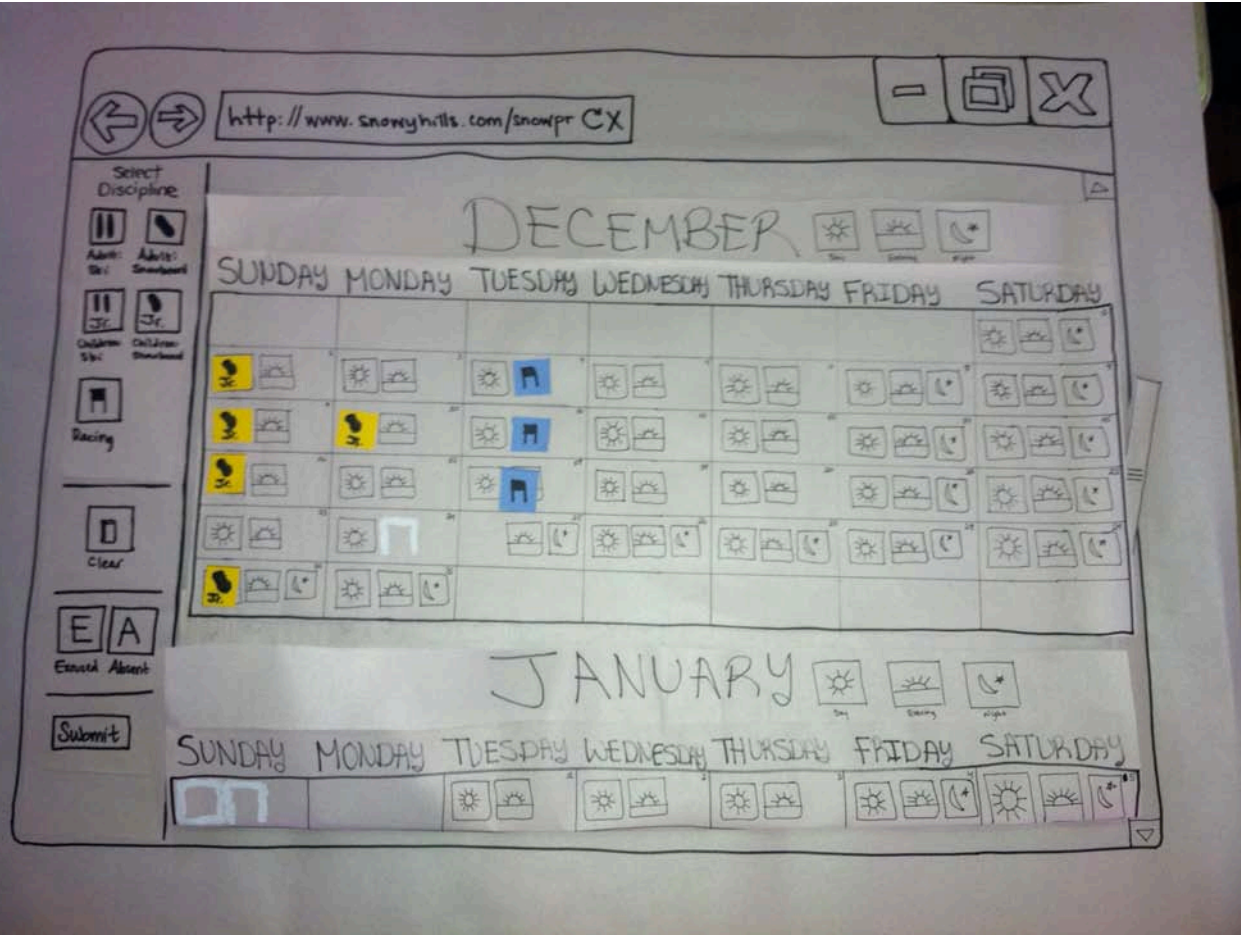 http://www.snowyhills.com/snowpr C X
Select
Discipline
Adult: Ski
Adult: Snowboard
Jr.
Jr.
Children Ski
Children Snowboard
Racing
Clear
E A
Excused Absent
Submit
DECEMBER
Day Evening Night
SUNDAY MONDAY TUESDAY WEDNESDAY THURSDAY FRIDAY SATURDAY
Jr.
Jr. Jr.
Jr.
Jr.
JANUARY
Day Evening Night
SUNDAY MONDAY TUESDAY WEDNESDAY THURSDAY FRIDAY SATURDAY